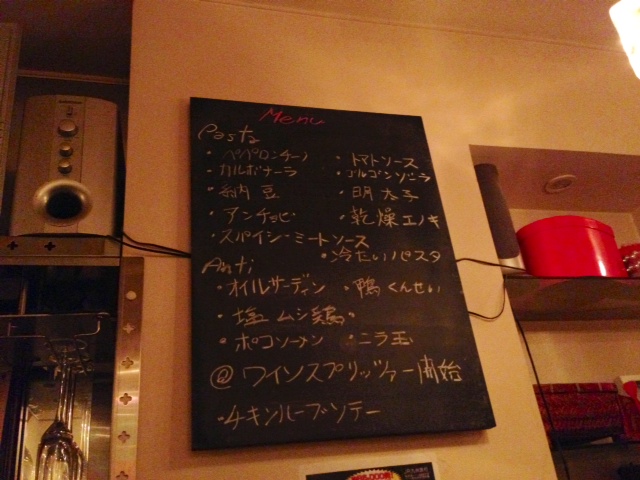 Menu
Pasta
・ペペロンチーノ ・トマトソース
・カルボナーラ ・ゴルゴンゾーラ
・納豆 ・明太子
・アンチョビ ・乾燥エノキ
・スパイシーミートソース
・冷たいパスタ
Anti
・オイルサーディン ・鴨くんせい
・塩ムシ鶏
・ニラ玉
@ワインスプリッツァー開始
・チキンハーブソテー